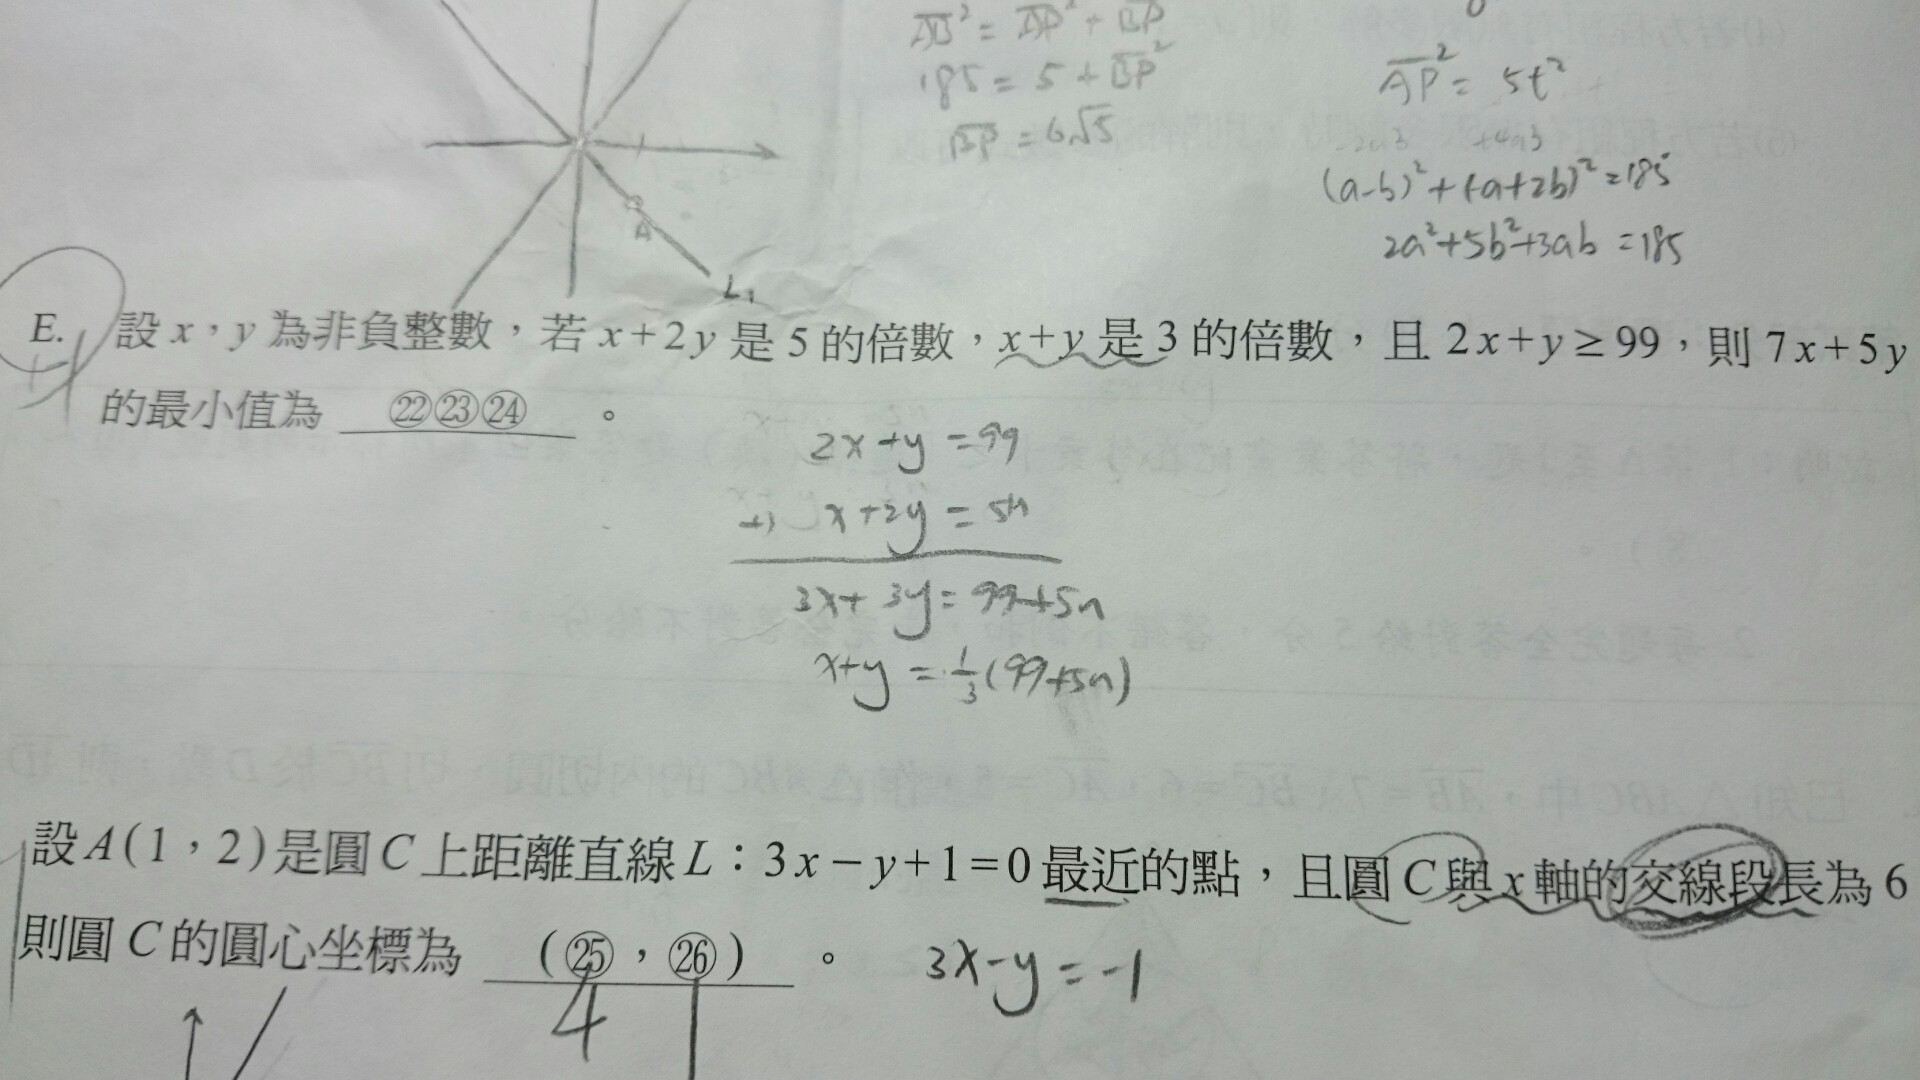 AB² = AP² + BP²
185 = 5 + BP²
BP = 6√5
AP² = 5t²
(a-b)² + (-a+2b)² = 185
2a²+5b²+3ab = 185
A
L₁
E. 設 x，y 為非負整數，若 x+2y 是 5 的倍數，x+y 是 3 的倍數，且 2x+y≥99，則 7x+5y
的最小值為 ㉒㉓㉔ 。
2x+y =99
+) x+2y = 5n
3x+3y= 99+5n
x+y = 1/3(99+5n)
設 A(1，2) 是圓 C 上距離直線 L：3x－y+1=0 最近的點，且圓 C 與 x 軸的交線段長為 6
則圓 C 的圓心坐標為 (㉕，㉖) 。 3x-y=-1
4 1